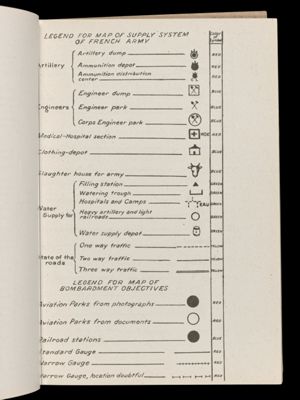 LEGEND FOR MAP OF SUPPLY SYSTEM
OF FRENCH ARMY
Color of Symbol
Artillery
Artillery dump RED
Ammunition depot RED
Ammunition distribution
center RED
Engineers
Engineer dump BLUE
Engineer park BLUE
Corps Engineer park BLUE
Medical-Hospital section HOE RED
Clothing-depot BLUE
Slaughter house for army BLUE
Water
Supply for
Filling station GREEN
Watering trough GREEN
Hospitals and Camps EAU GREEN
Heavy artillery and light
railroads GREEN
Water supply depot GREEN
State of the
roads
One way traffic YELLOW
Two way traffic YELLOW
Three way traffic YELLOW
LEGEND FOR MAP OF
BOMBARDMENT OBJECTIVES
Aviation Parks from photographs RED
Aviation Parks from documents RED
Railroad stations BLUE
Standard Gauge RED
Narrow Gauge RED
Narrow Gauge, location doubtful RED